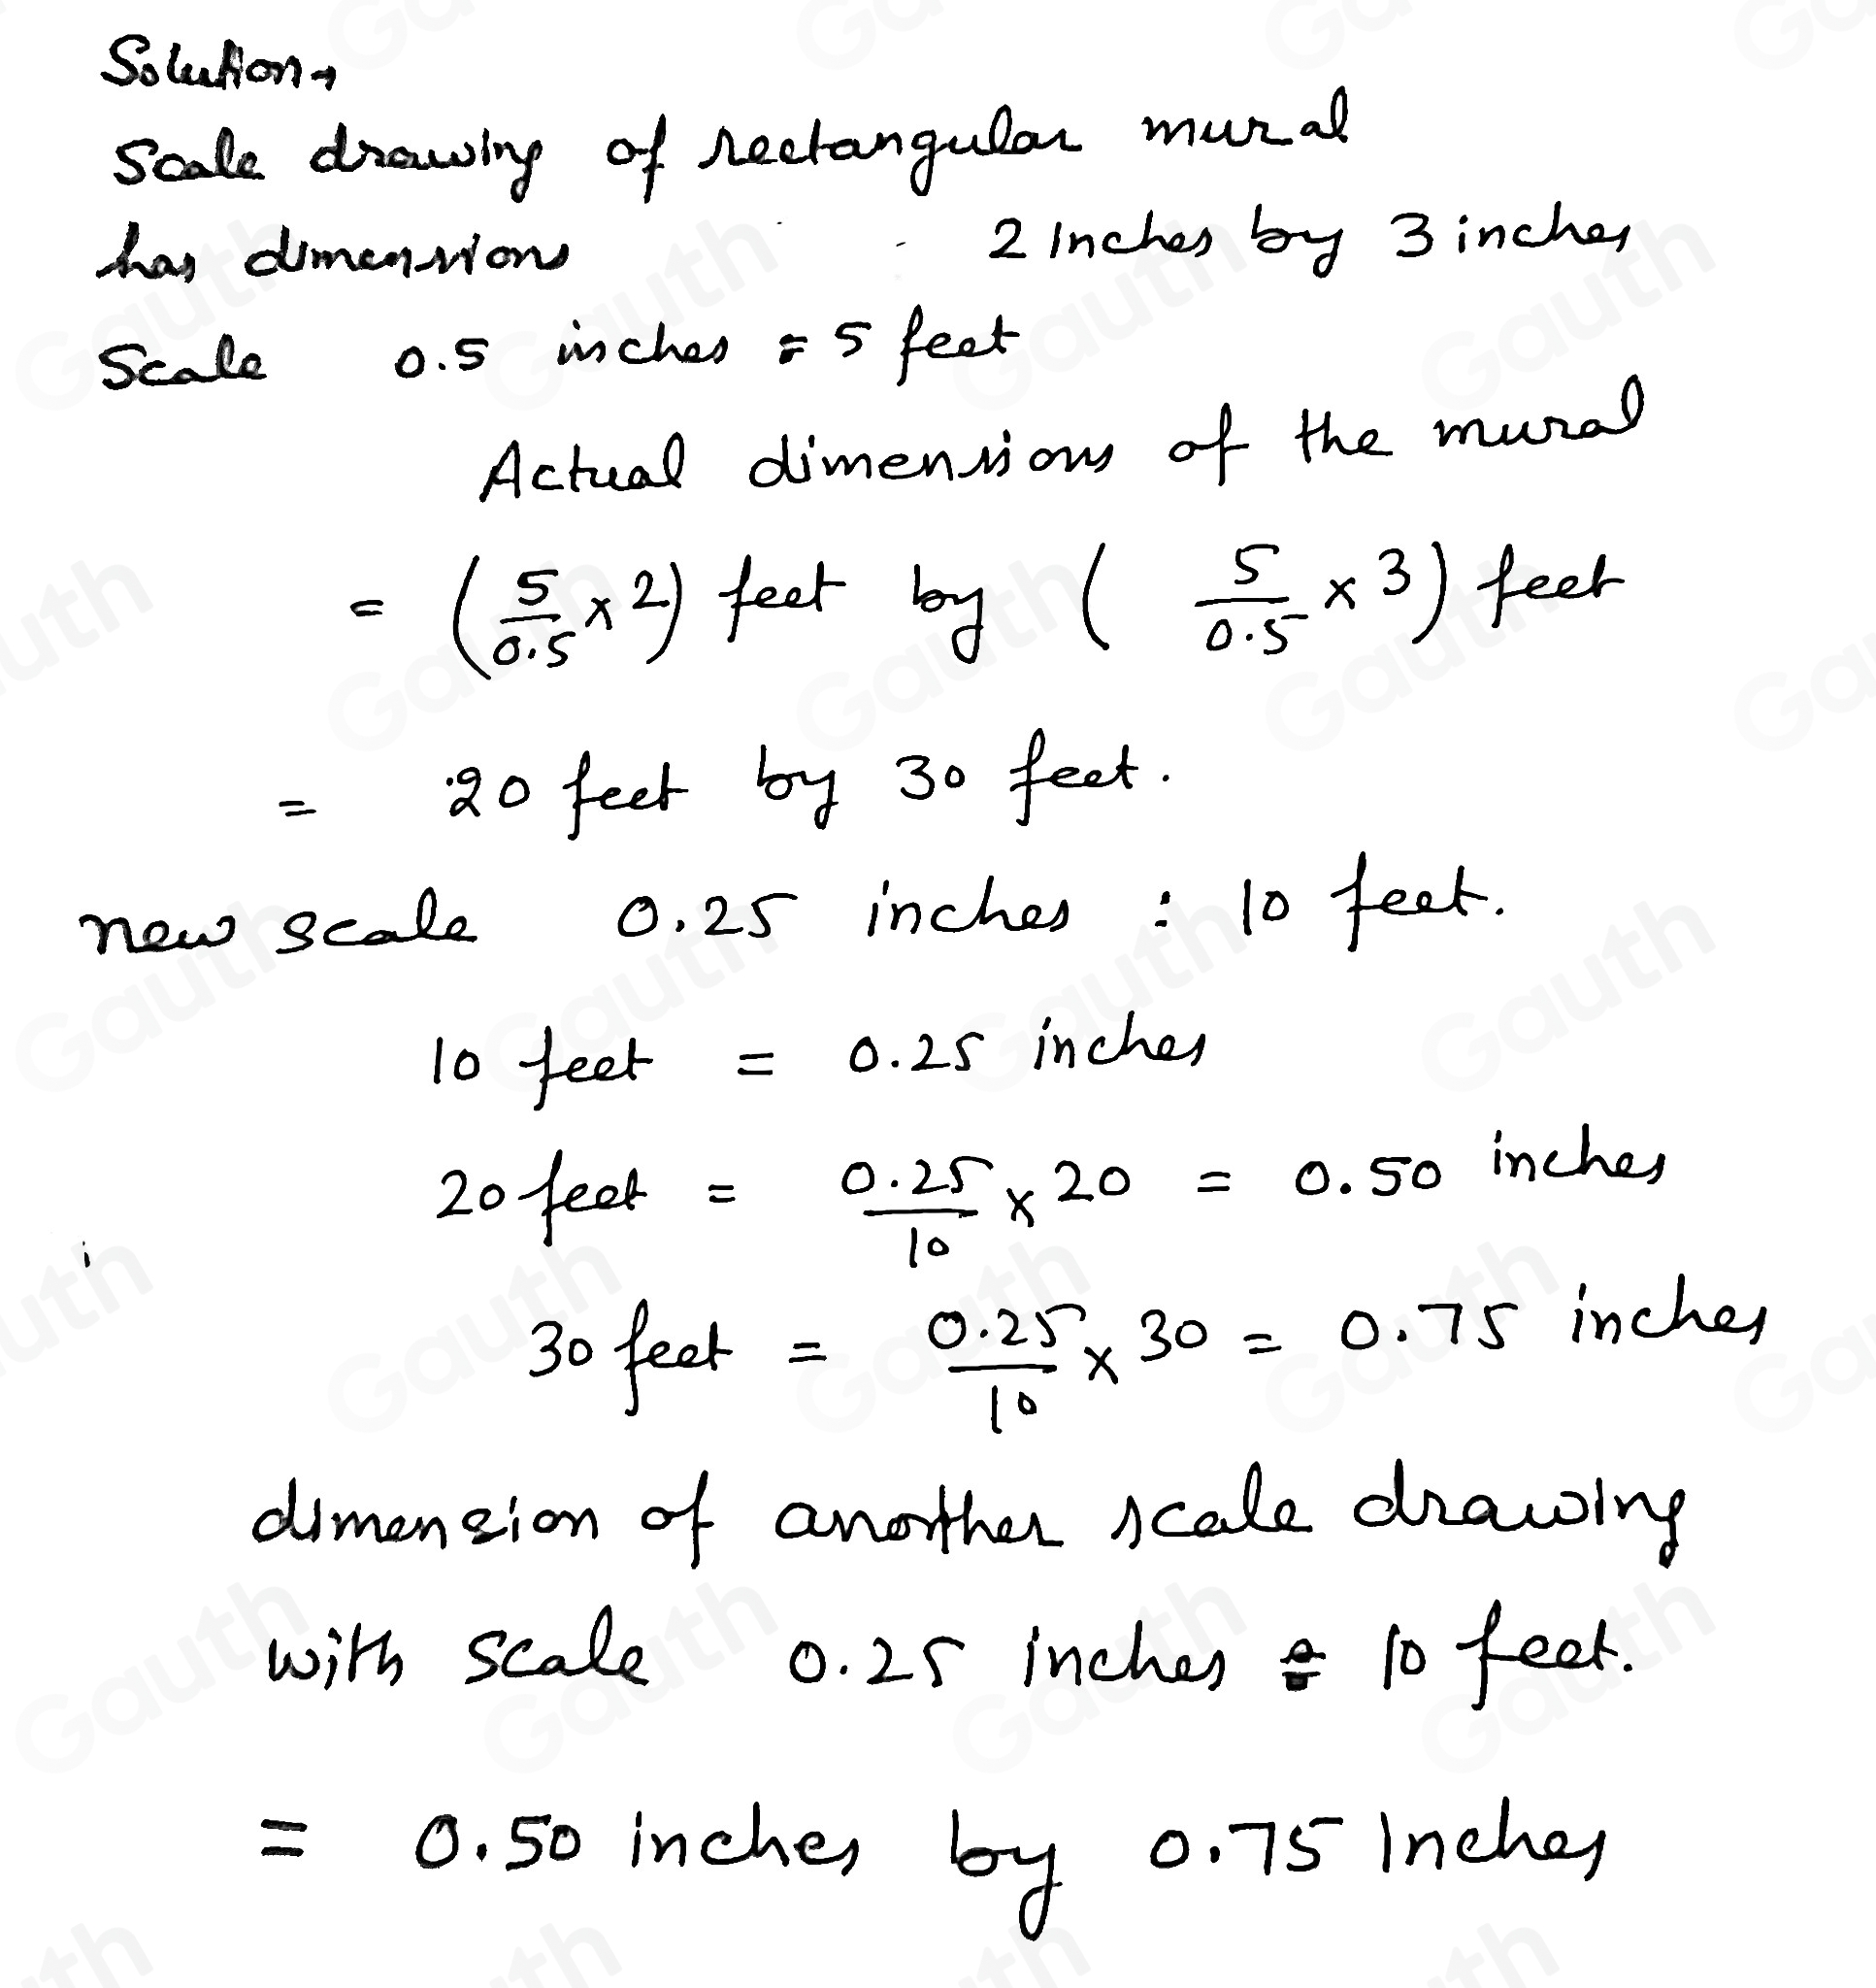 Solution→
Scale drawing of rectangular mural
has dimensions 2 inches by 3 inches
Scale 0.5 inches = 5 feet
Actual dimensions of the mural
= (5/0.5 × 2) feet by (5/0.5 × 3) feet
= 20 feet by 30 feet.
new scale 0.25 inches : 10 feet.
10 feet = 0.25 inches
20 feet = 0.25/10 × 20 = 0.50 inches
30 feet = 0.25/10 × 30 = 0.75 inches
dimension of another scale drawing
with scale 0.25 inches = 10 feet.
= 0.50 inches by 0.75 Inches